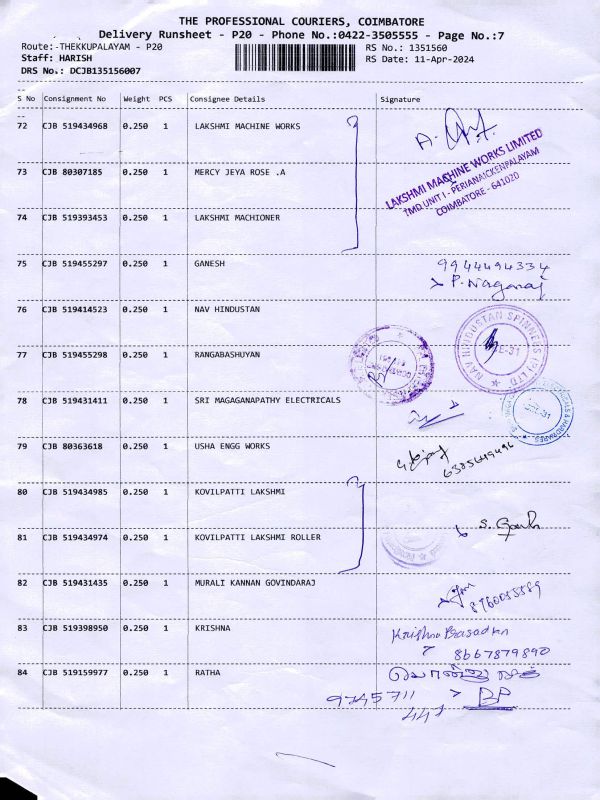 THE PROFESSIONAL COURIERS, COIMBATORE
Delivery Runsheet - P20 - Phone No.:0422-3505555 - Page No.:7
Route:-THEKKUPALAYAM - P20
RS No.: 1351560
Staff: HARISH
RS Date: 11-Apr-2024
DRS No.: DCJB135156007
S No Consignment No Weight PCS Consignee Details Signature
72 CJB 519434968 0.250 1 LAKSHMI MACHINE WORKS
LAKSHMI MACHINE WORKS LIMITED
TMD UNIT I - PERIANAICKENPALAYAM
COIMBATORE - 641020
73 CJB 80307185 0.250 1 MERCY JEYA ROSE .A
74 CJB 519393453 0.250 1 LAKSHMI MACHIONER
75 CJB 519455297 0.250 1 GANESH
9944494334
P. Nagaraj
76 CJB 519414523 0.250 1 NAV HINDUSTAN
NAV HINDUSTAN SPINNERS (P) LTD
CBE-31
77 CJB 519455298 0.250 1 RANGABASHUYAN
78 CJB 519431411 0.250 1 SRI MAGAGANAPATHY ELECTRICALS
79 CJB 80363618 0.250 1 USHA ENGG WORKS
80 CJB 519434985 0.250 1 KOVILPATTI LAKSHMI
81 CJB 519434974 0.250 1 KOVILPATTI LAKSHMI ROLLER
82 CJB 519431435 0.250 1 MURALI KANNAN GOVINDARAJ
83 CJB 519398950 0.250 1 KRISHNA
Krishna Prasadhan
8667879890
84 CJB 519159977 0.250 1 RATHA
9745711
441
BP